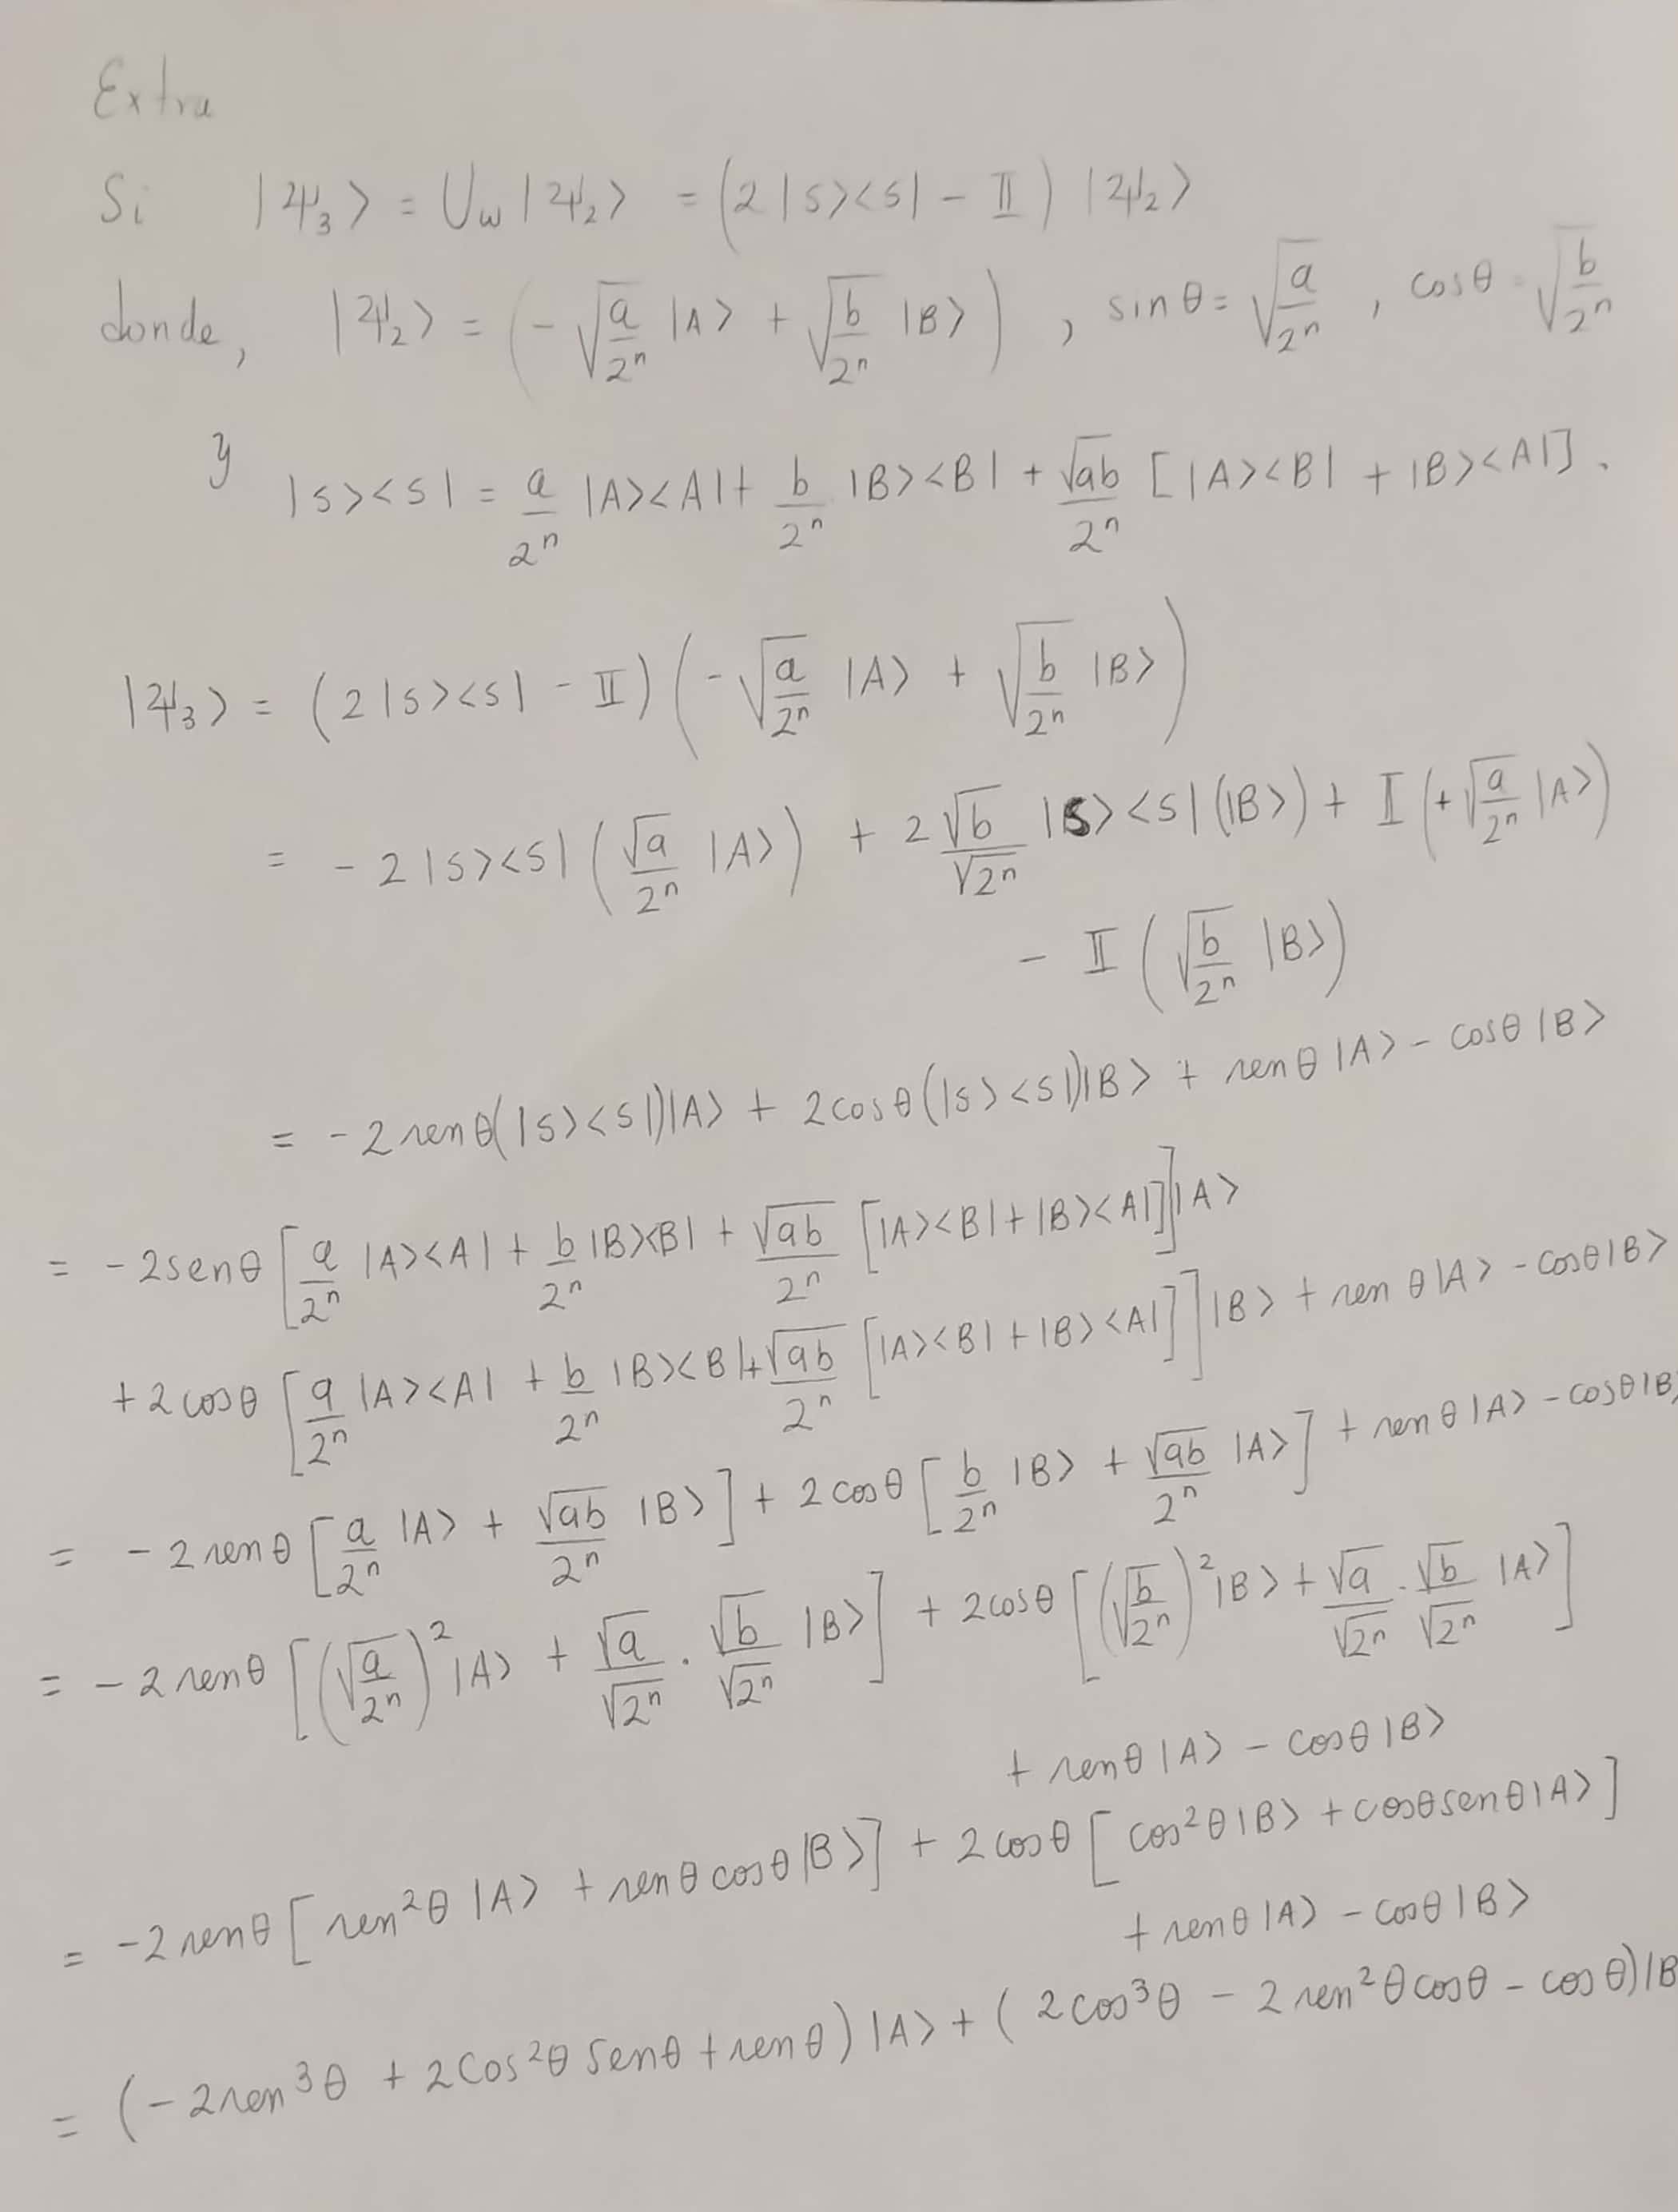 Extra
Si |ψ₃> = U_w |ψ₂> = (2 |s><s| - 𝕀) |ψ₂>
donde, |ψ₂> = (-√(a/2ⁿ) |A> + √(b/2ⁿ) |B>) , sin θ = √(a/2ⁿ) , cos θ = √(b/2ⁿ)
y |s><s| = a/2ⁿ |A><A| + b/2ⁿ |B><B| + √ab/2ⁿ [|A><B| + |B><A|].
|ψ₃> = (2 |s><s| - 𝕀) (-√(a/2ⁿ) |A> + √(b/2ⁿ) |B>)
= - 2 |s><s| (√(a/2ⁿ) |A>) + 2 √b/√2ⁿ |s><s| (|B>) + 𝕀 (+√(a/2ⁿ) |A>)
- 𝕀 (√(b/2ⁿ) |B>)
= - 2 sen θ(|s><s|)|A> + 2 cos θ(|s><s|)|B> + sen θ |A> - cos θ |B>
= - 2 sen θ [a/2ⁿ |A><A| + b/2ⁿ |B><B| + √ab/2ⁿ [|A><B| + |B><A|]] |A>
+ 2 cos θ [a/2ⁿ |A><A| + b/2ⁿ |B><B| + √ab/2ⁿ [|A><B| + |B><A|]] |B> + sen θ |A> - cos θ |B>
= - 2 sen θ [a/2ⁿ |A> + √ab/2ⁿ |B>] + 2 cos θ [b/2ⁿ |B> + √ab/2ⁿ |A>] + sen θ |A> - cos θ |B>
= - 2 sen θ [(√(a/2ⁿ))² |A> + √a/√2ⁿ · √b/√2ⁿ |B>] + 2 cos θ [(√(b/2ⁿ))² |B> + √a/√2ⁿ · √b/√2ⁿ |A>]
+ sen θ |A> - cos θ |B>
= -2 sen θ [sen²θ |A> + sen θ cos θ |B>] + 2 cos θ [cos²θ |B> + cos θ sen θ |A>]
+ sen θ |A> - cos θ |B>
= (- 2 sen³θ + 2 cos²θ sen θ + sen θ) |A> + (2 cos³θ - 2 sen²θ cos θ - cos θ) |B